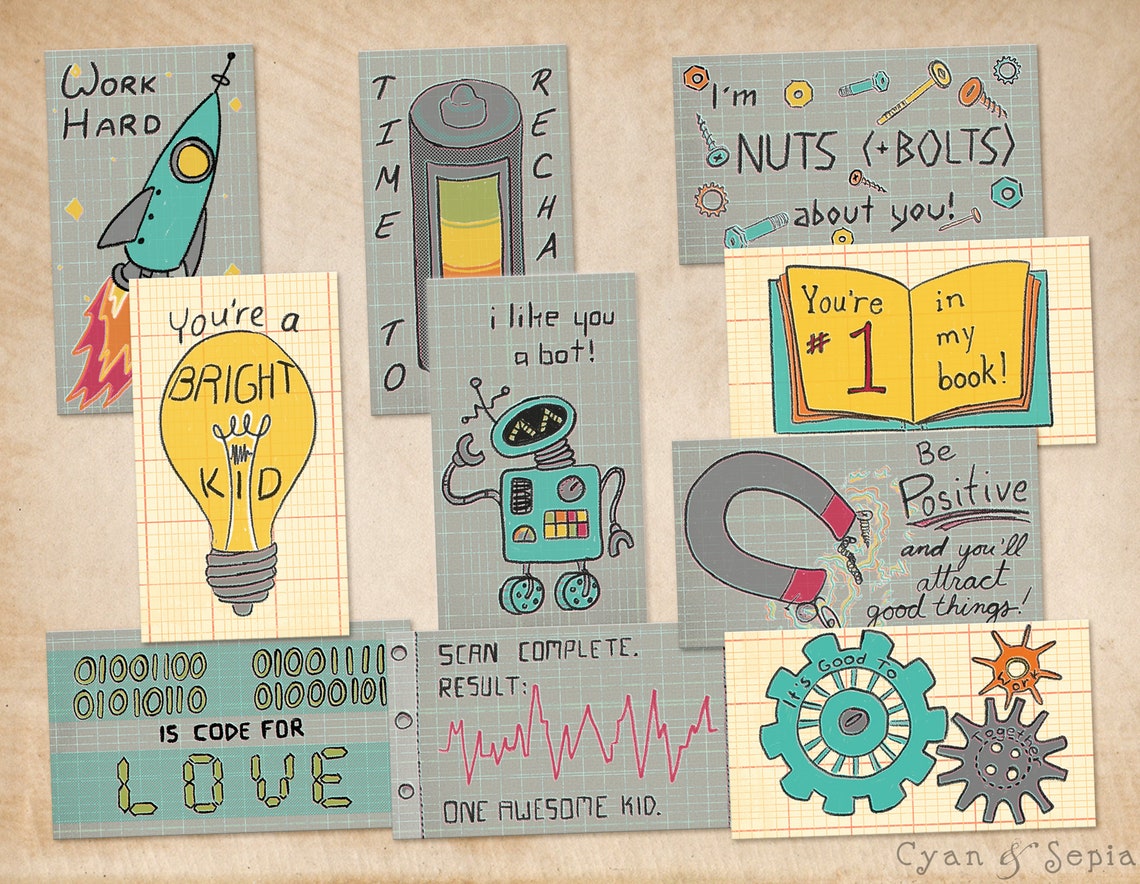 WORK
HARD
TIME TO
RECHA
I'm
NUTS (+BOLTS)
about you!
You're a
BRIGHT
KID
i like you
a bot!
You're
#1
in
my
book!
Be
Positive
and you'll
attract
good things!
01001100 01001111
01010110 01000101
IS CODE FOR
LOVE
SCAN COMPLETE.
RESULT:
ONE AWESOME KID.
It's Good To
Work
Together
Cyan & Sepia